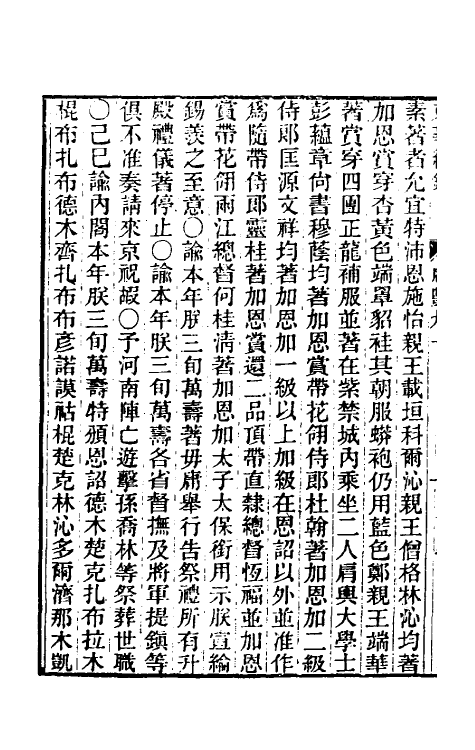 素著者允宜特沛恩施怡親王載垣科爾沁親王僧格林沁均著
加恩賞穿杏黃色端罩貂袿其朝服蟒袍仍用藍色鄭親王端華
著賞穿四團正龍補服並著在紫禁城內乘坐二人肩輿大學士
彭蘊章尚書穆蔭均著加恩賞帶花翎侍郎杜翰著加恩加二級
侍郎匡源文祥均著加恩加一級以上加級在恩詔以外並准作
爲隨帶侍郎靈桂著加恩賞還二品頂帶直隸總督恆福並加恩
賞帶花翎兩江總督何桂清著加恩加太子太保銜用示朕宣綸
錫羨之至意〇諭本年朕三旬萬壽著毋庸舉行告祭禮所有升
殿禮儀著停止〇諭本年朕三旬萬壽各省督撫及將軍提鎮等
俱不准奏請來京祝嘏〇予河南陣亡遊擊孫喬林等祭葬世職
〇己巳諭內閣本年朕三旬萬壽特頒恩詔德木楚克扎布拉木
棍布扎布德木齊扎布布彥諾謨祜棍楚克林沁多爾濟那木凱